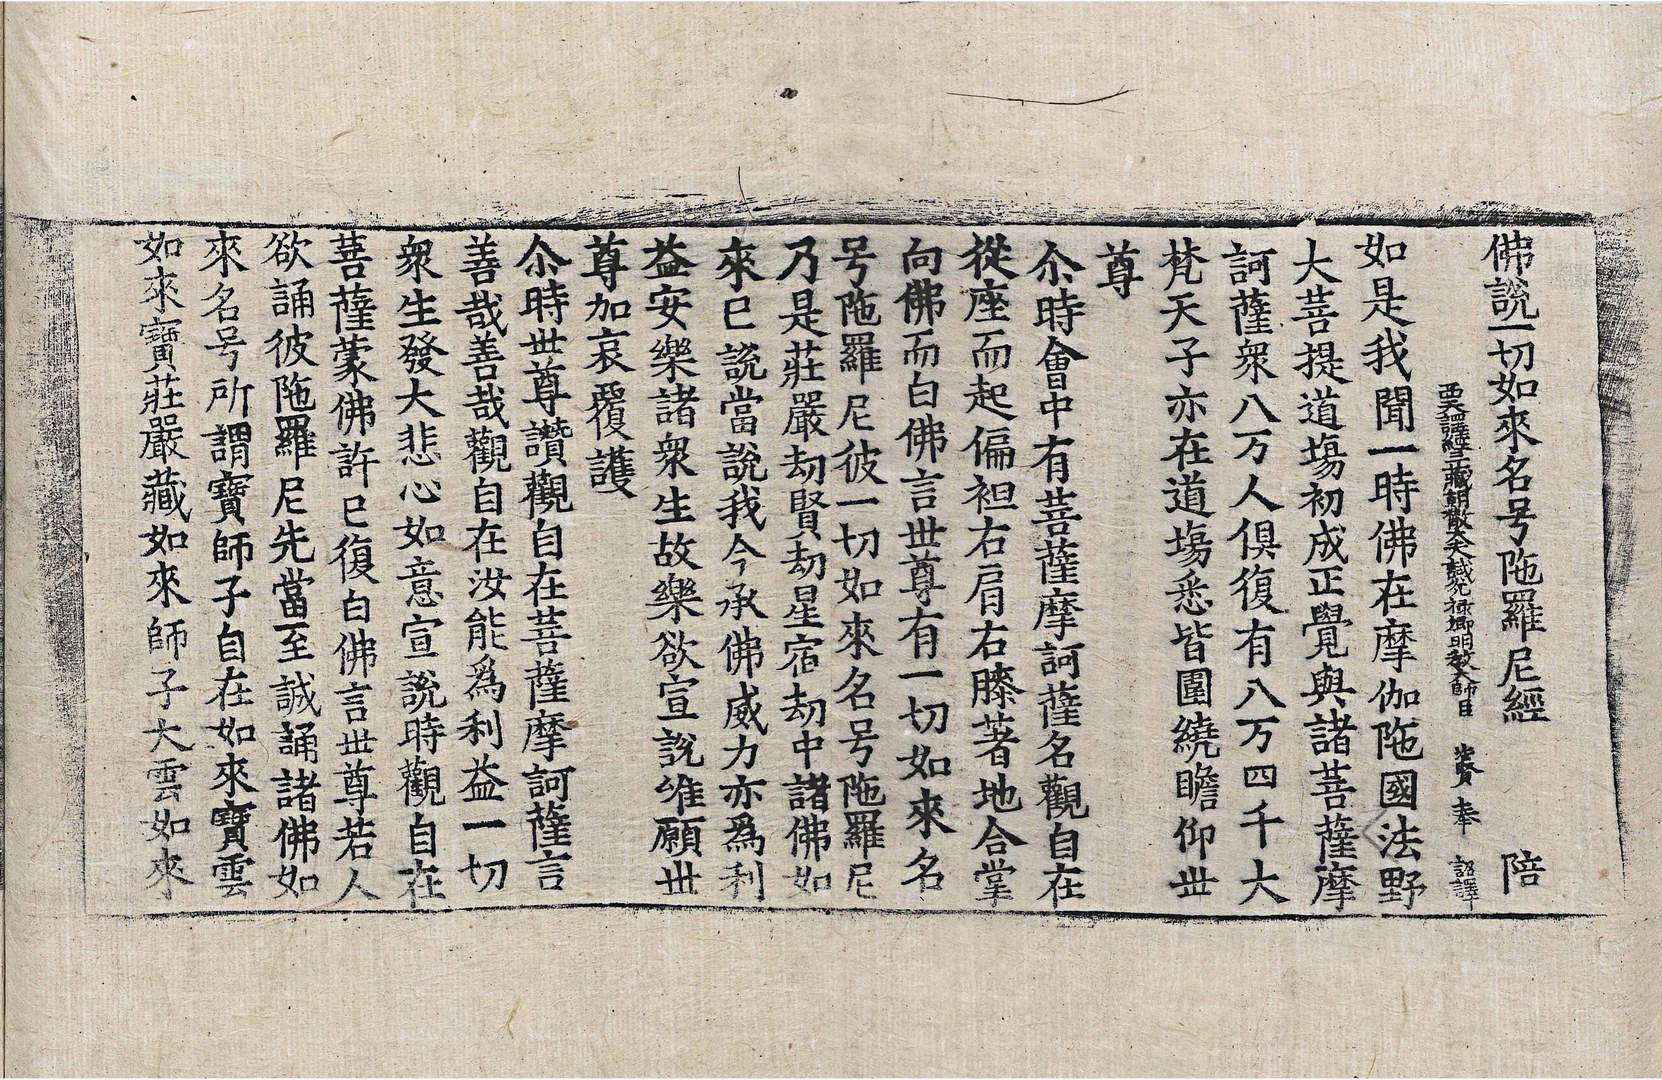 佛說一切如來名号陁羅尼經 陪
西天譯經三藏朝散大夫試光禄卿明教大師臣 法賢 奉 詔譯
如是我聞一時佛在摩伽陁國法野
大菩提道場初成正覺與諸菩薩摩
訶薩衆八万人俱復有八万四千大
梵天子亦在道場悉皆圍繞瞻仰世
尊
尒時會中有菩薩摩訶薩名觀自在
從座而起偏袒右肩右膝著地合掌
向佛而白佛言世尊有一切如來名
号陁羅尼彼一切如來名号陁羅尼
乃是莊嚴劫賢劫星宿劫中諸佛如
來已說當說我今承佛威力亦爲利
益安樂諸衆生故樂欲宣說唯願世
尊加哀覆護
尒時世尊讚觀自在菩薩摩訶薩言
善哉善哉觀自在汝能爲利益一切
衆生發大悲心如意宣說時觀自在
菩薩蒙佛許已復白佛言世尊若人
欲誦彼陁羅尼先當至誠誦諸佛如
來名号所謂寶師子自在如來寶雲
如來寶莊嚴藏如來師子大雲如來